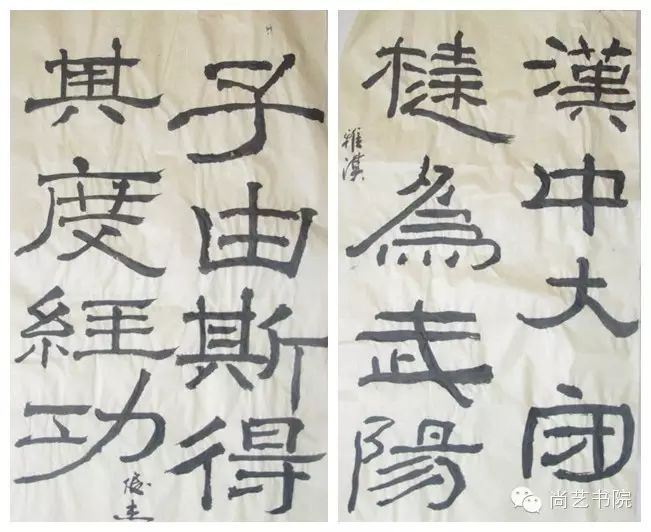 子由斯得
其度經功
漢中大守
楗為武陽
雅淇
尚艺书院